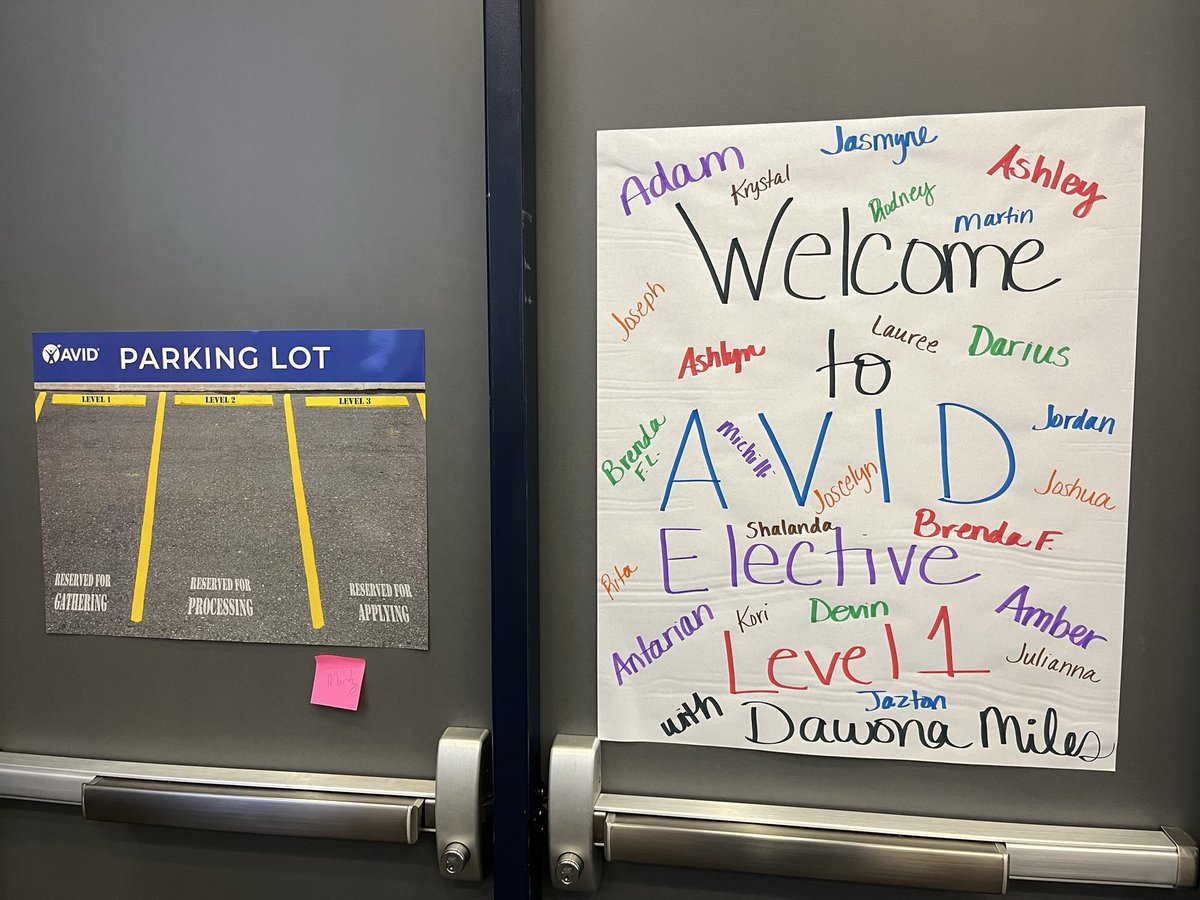 AVID PARKING LOT
LEVEL 1 LEVEL 2 LEVEL 3
RESERVED FOR
GATHERING
RESERVED FOR
PROCESSING
RESERVED FOR
APPLYING
Jasmyne
Adam
Krystal
Ashley
Rodney
Martin
Welcome
Joseph
Lauree
Darius
Ashlyn
to
Jordan
Brenda
F.L.
Michelle
AVID
Joscelyn
Joshua
Shalanda
Brenda F.
Elective
Rita
Antarian
Kori
Devin
Amber
Level 1
Julianna
Jazton
with Dawona Miles